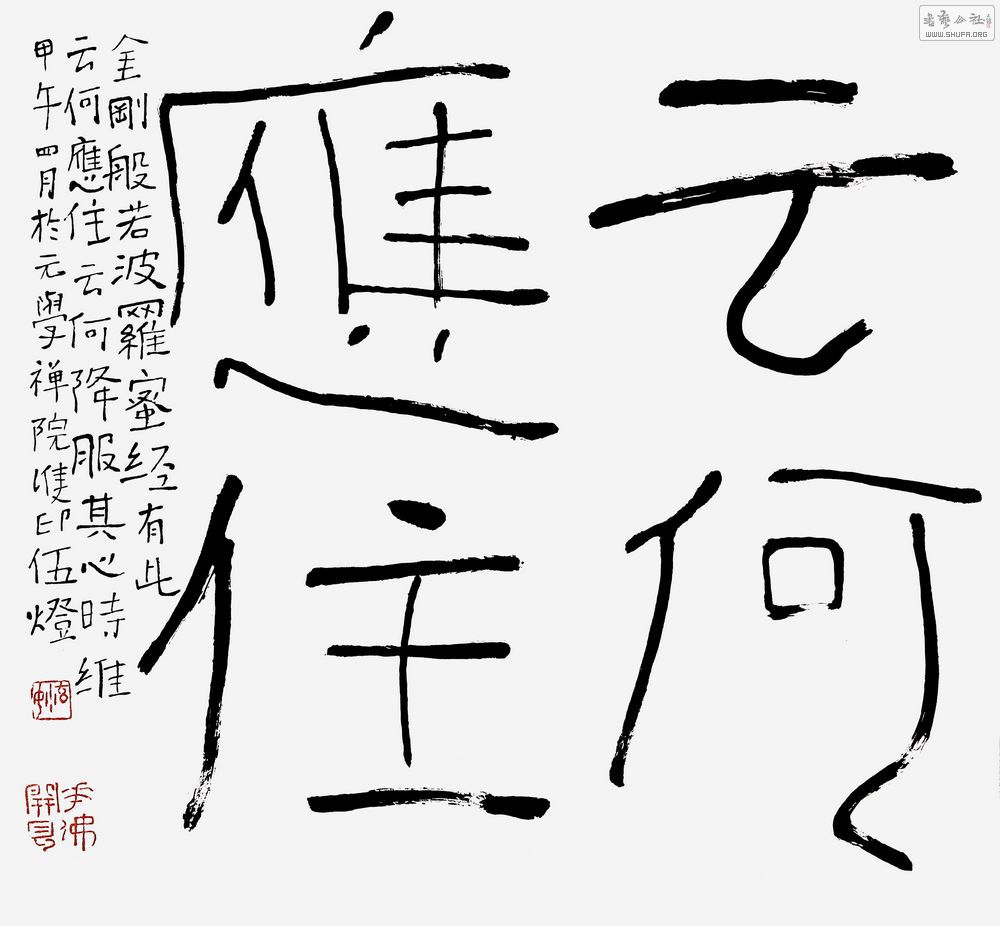 云何
應住
金剛般若波羅蜜经有此
云何應住云何降服其心時维
甲午四月於元學禅院雙印伍燈
書艺公社
WWW.SHUFA.ORG